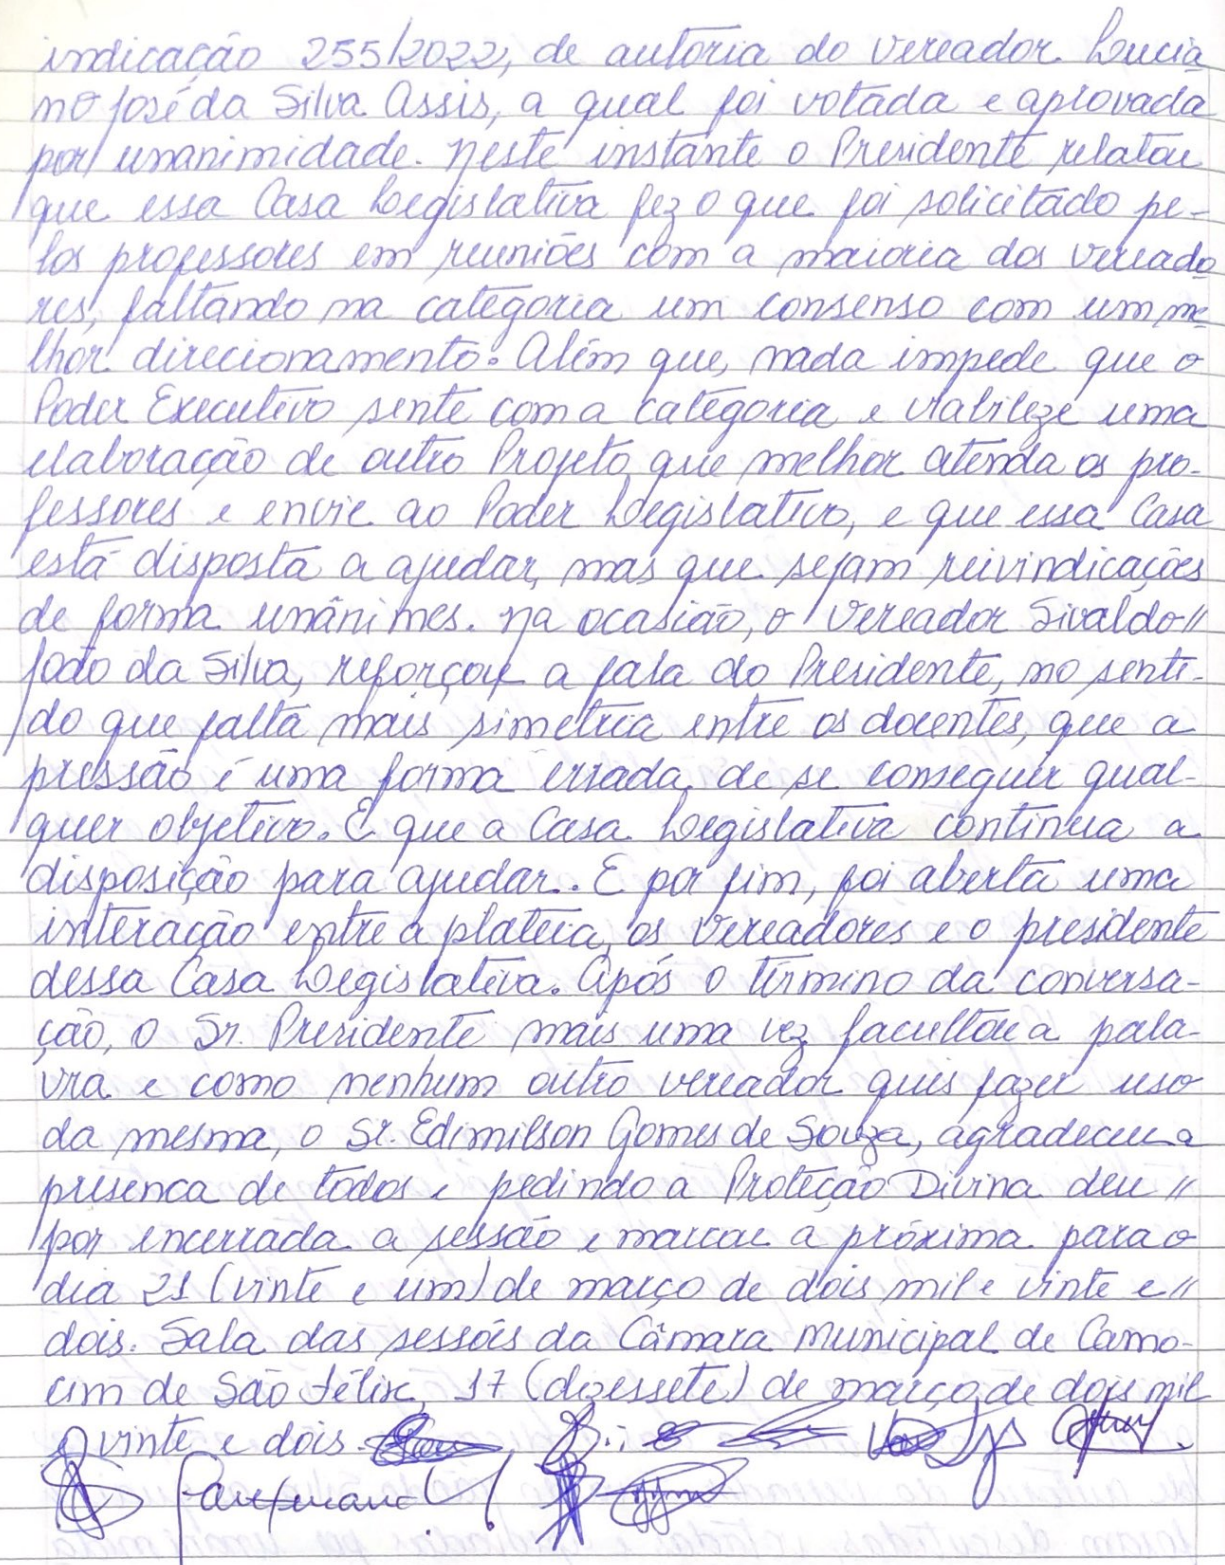 indicação 255/2022, de autoria do Vereador Lucia
no José da Silva Assis, a qual foi votada e aprovada
por unanimidade. Neste instante o Presidente relatou
que essa Casa Legislativa fez o que foi solicitado pe-
los professores em reuniões com a maioria dos vereado
res, faltando na categoria um consenso com um me
lhor direcionamento. Além que, nada impede que o
Poder Executivo sente com a categoria e viabilize uma
elaboração de outro Projeto que melhor atenda os pro-
fessores e envie ao Poder Legislativo, e que essa Casa
está disposta a ajudar, mas que sejam reivindicações
de forma unânimes. Na ocasião, o Vereador Sivaldo //
João da Silva, reforçou a fala do Presidente, no senti-
do que falta mais simetria entre os docentes, que a
pressão é uma forma errada de se conseguir qual-
quer objetivo. E que a Casa Legislativa continua a
disposição para ajudar. E por fim, foi aberta uma
interação entre a plateia, os Vereadores e o presidente
dessa Casa Legislativa. Após o término da conversa-
ção, o Sr. Presidente mais uma vez facultou a pala-
vra e como nenhum outro vereador quis fazer uso
da mesma, o Sr. Edimilson Gomes de Souza, agradeceu a
presenca de todos e pedindo a Proteção Divina deu //
por encerrada a sessão e marcou a próxima para o
dia 21 (vinte e um) de março de dois mil e vinte e //
dois. Sala das sessões da Câmara Municipal de Camo-
cim de São Félix, 17 (dezessete) de março de dois mil
e vinte e dois.